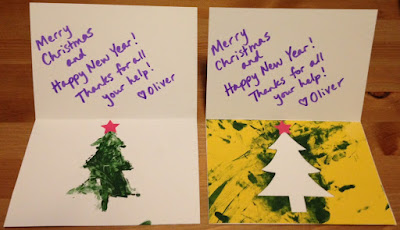 Merry
Christmas
and
Happy New Year!
Thanks for all
your help!
♡ Oliver
Merry
Christmas
and
Happy New Year!
Thanks for all
your help!
♡ Oliver